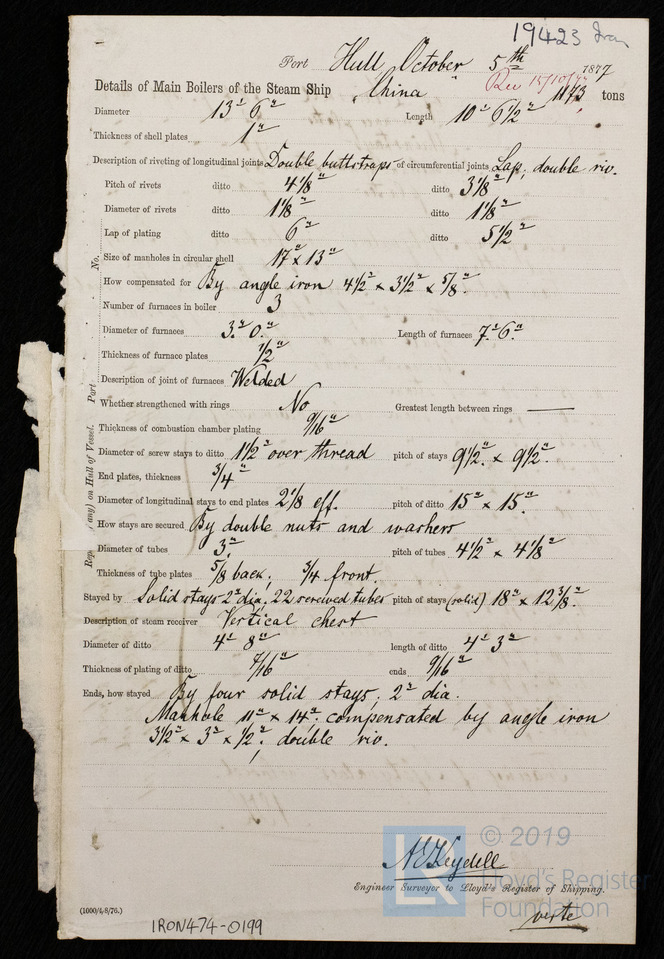 19423 Iron
Port Hull October 5th 1877
Rec 15/10/77
Details of Main Boilers of the Steam Ship "China" 1173 tons
Diameter 13' 6" Length 10' 6 1/2"
Thickness of shell plates 1"
Description of riveting of longitudinal joints Double buttstraps of circumferential joints Lap, double riv.
Pitch of rivets ditto 4 1/8" ditto 3 1/8"
Diameter of rivets ditto 1 1/8" ditto 1 1/8"
Lap of plating ditto 6" ditto 5 1/2"
Size of manholes in circular shell 17" x 13"
How compensated for By angle iron 4 1/2" x 3 1/2" x 5/8".
Number of furnaces in boiler 3
Diameter of furnaces 3' 0" Length of furnaces 7' 6"
Thickness of furnace plates 1/2"
Description of joint of furnaces Welded
Whether strengthened with rings No Greatest length between rings —
Thickness of combustion chamber plating 9/16"
Diameter of screw stays to ditto 1 1/2" over thread pitch of stays 9 1/2" x 9 1/2"
End plates, thickness 3/4"
Diameter of longitudinal stays to end plates 2 1/8 eff. pitch of ditto 15" x 15"
How stays are secured By double nuts and washers
Diameter of tubes 3" pitch of tubes 4 1/2" x 4 1/8"
Thickness of tube plates 5/8 back, 3/4 front.
Stayed by Solid stays 2" dia, 22 screwed tubes pitch of stays (solid) 18" x 12 3/8"
Description of steam receiver Vertical chest
Diameter of ditto 4' 8" length of ditto 4' 3"
Thickness of plating of ditto 7/16" ends 9/16"
Ends, how stayed By four solid stays, 2" dia.
Manhole 11" x 14", compensated by angle iron
3 1/2" x 3" x 1/2", double riv.
(any) on Hull of Vessel. Port No.
LR © 2019
Lloyd's Register
Foundation
Engineer Surveyor to Lloyd's Register of Shipping.
verte
(1000/4/8/76.)
IRON474-0199